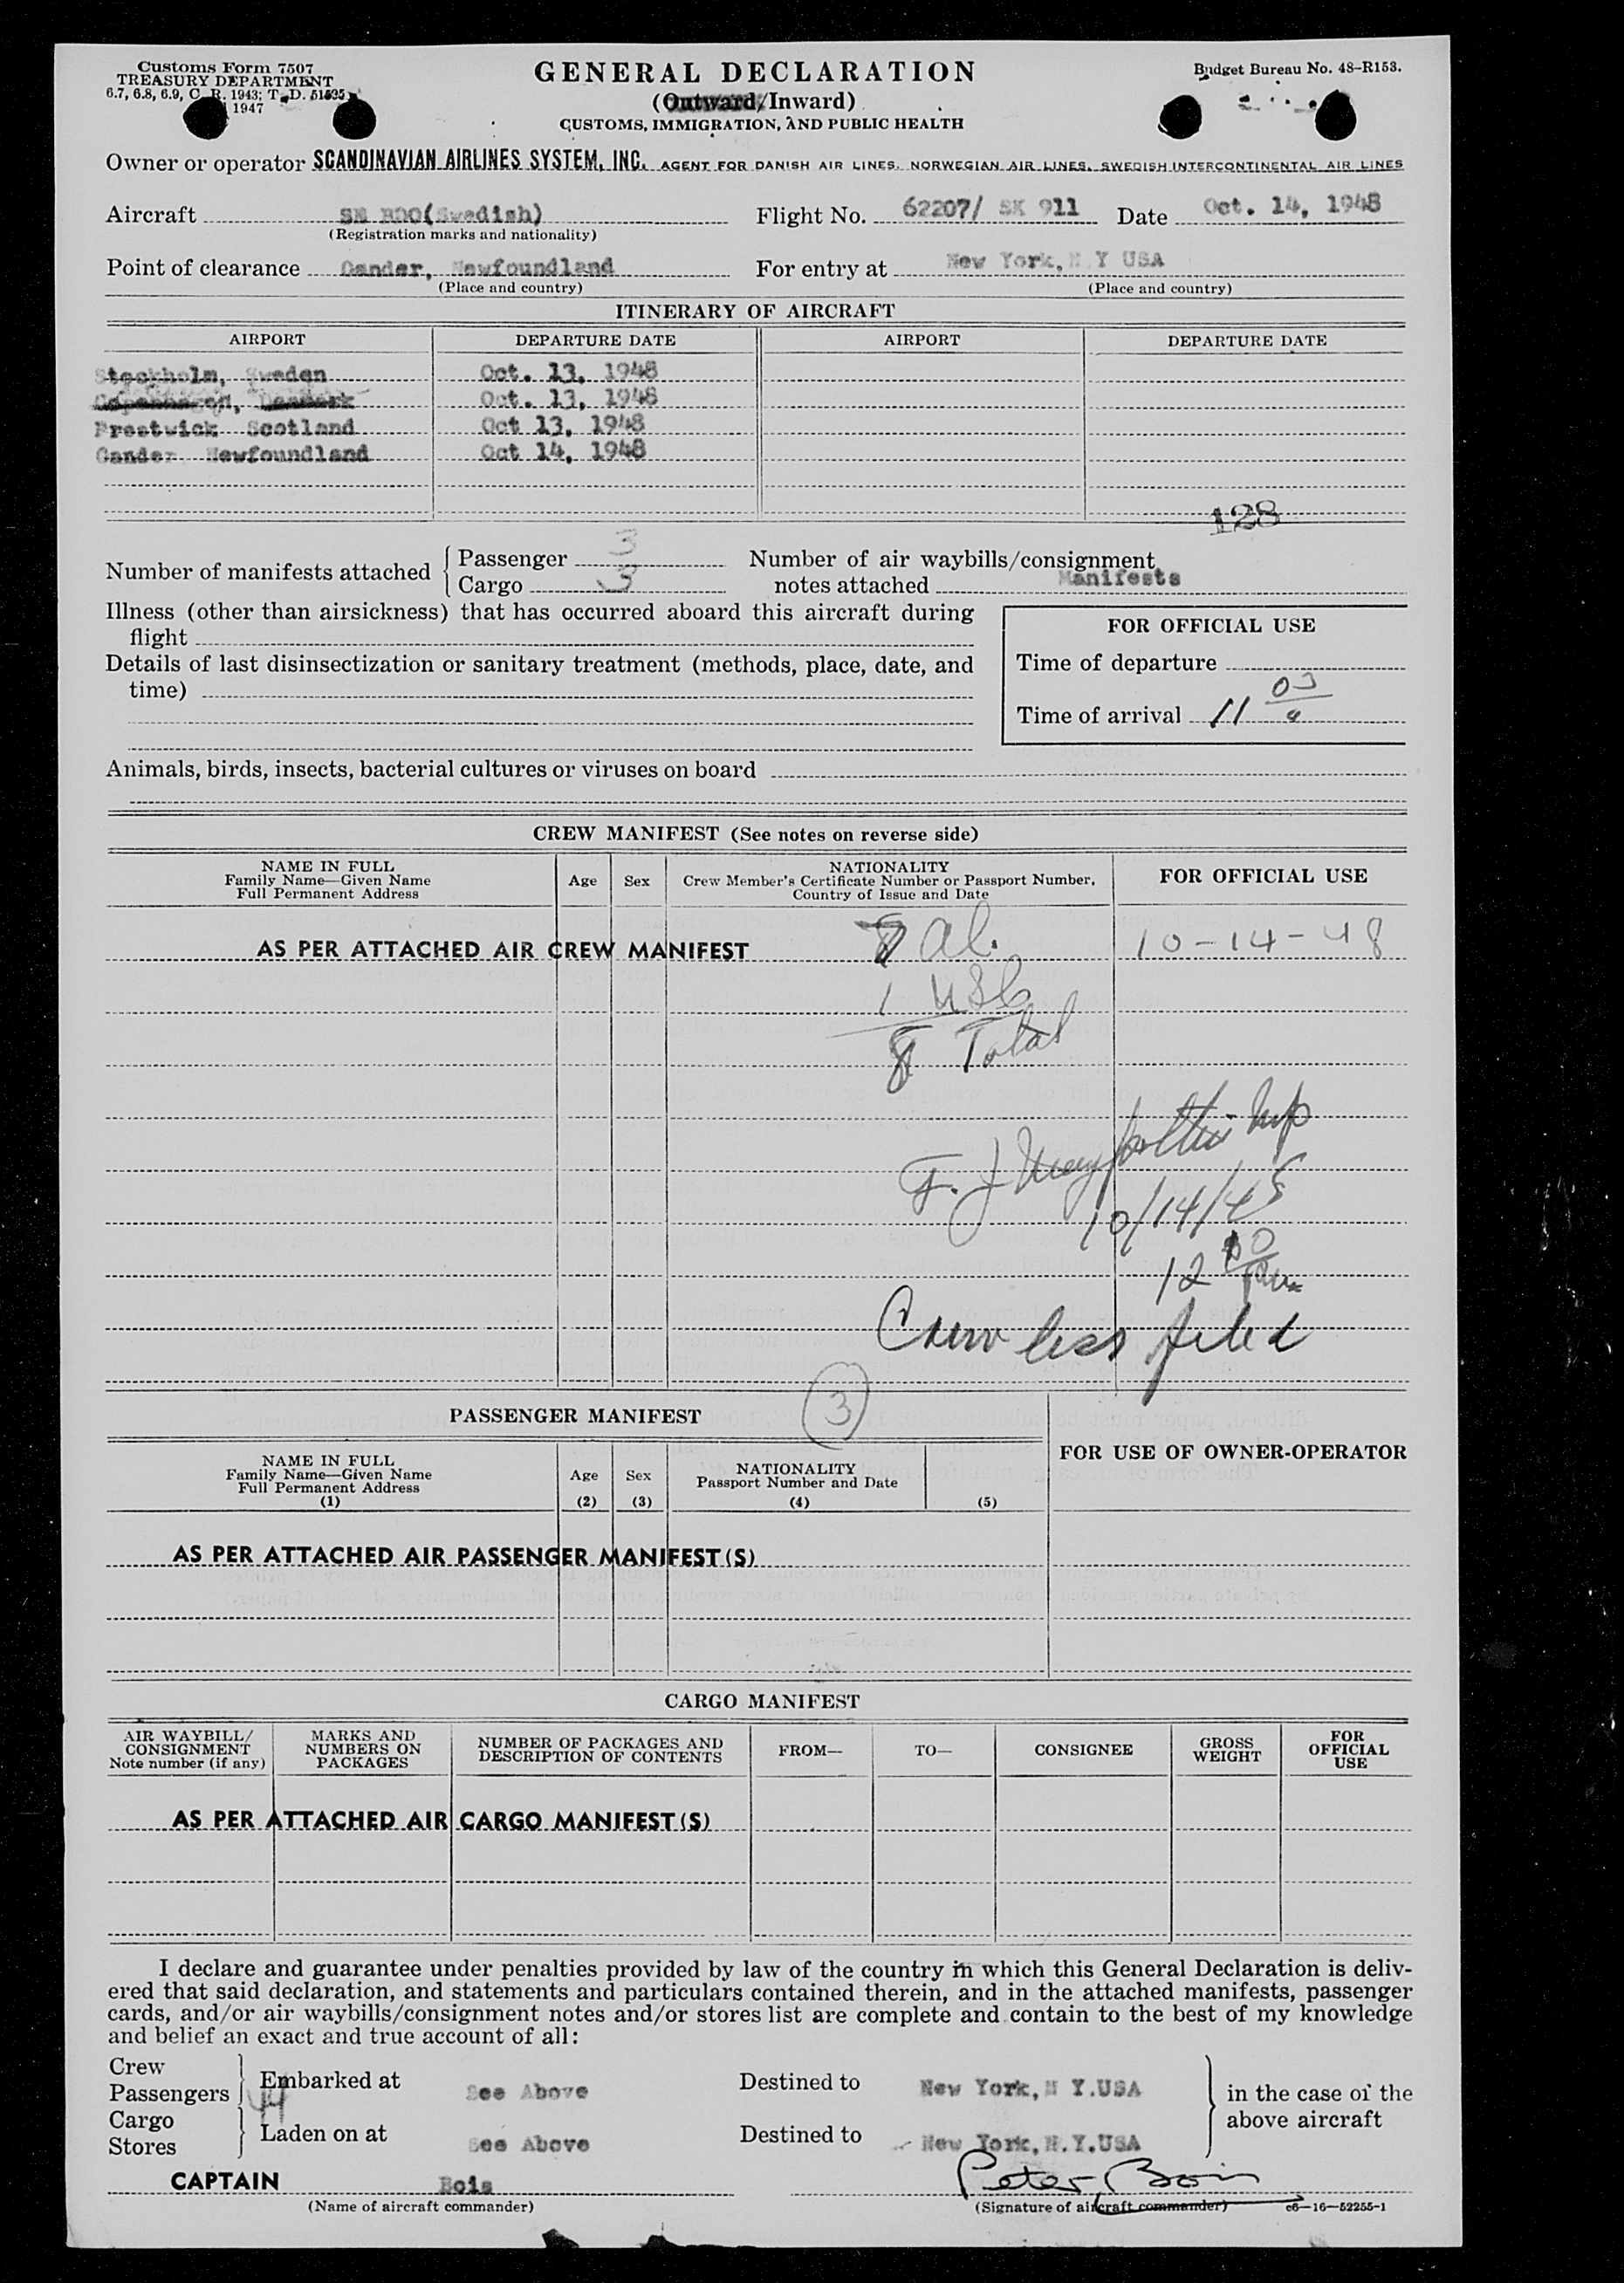 Customs Form 7507
TREASURY DEPARTMENT
6.7, 6.8, 6.9, C. R. 1943; T. D. 51535
1947
GENERAL DECLARATION
(Outward/Inward)
CUSTOMS, IMMIGRATION, AND PUBLIC HEALTH
Budget Bureau No. 48–R153.
Owner or operator SCANDINAVIAN AIRLINES SYSTEM, INC. AGENT FOR DANISH AIR LINES. NORWEGIAN AIR LINES. SWEDISH INTERCONTINENTAL AIR LINES
Aircraft SE (Swedish) Flight No. 62207/ SK 911 Date Oct. 14, 1948
(Registration marks and nationality)
Point of clearance Gander, Newfoundland For entry at New York, N Y USA
(Place and country) (Place and country)
ITINERARY OF AIRCRAFT
AIRPORT DEPARTURE DATE AIRPORT DEPARTURE DATE
Stockholm, Sweden Oct. 13, 1948
Copenhagen, Denmark Oct. 13, 1948
Prestwick Scotland Oct 13, 1948
Gander Newfoundland Oct 14, 1948
128
Number of manifests attached Passenger 3 Number of air waybills/consignment
Cargo 3 notes attached Manifests
Illness (other than airsickness) that has occurred aboard this aircraft during
flight
Details of last disinsectization or sanitary treatment (methods, place, date, and
time)
FOR OFFICIAL USE
Time of departure
Time of arrival 11 03 a
Animals, birds, insects, bacterial cultures or viruses on board
CREW MANIFEST (See notes on reverse side)
NAME IN FULL
Family Name—Given Name
Full Permanent Address
Age Sex
NATIONALITY
Crew Member's Certificate Number or Passport Number,
Country of Issue and Date
FOR OFFICIAL USE
AS PER ATTACHED AIR CREW MANIFEST 7 al. 10-14-48
1 USC
8 Total
F. J
10/14/48
12
Crew less filed
3
PASSENGER MANIFEST
NAME IN FULL
Family Name—Given Name
Full Permanent Address
(1)
Age
(2)
Sex
(3)
NATIONALITY
Passport Number and Date
(4) (5)
FOR USE OF OWNER-OPERATOR
AS PER ATTACHED AIR PASSENGER MANIFEST(S)
CARGO MANIFEST
AIR WAYBILL/
CONSIGNMENT
Note number (if any)
MARKS AND
NUMBERS ON
PACKAGES
NUMBER OF PACKAGES AND
DESCRIPTION OF CONTENTS
FROM—
TO—
CONSIGNEE
GROSS
WEIGHT
FOR
OFFICIAL
USE
AS PER ATTACHED AIR CARGO MANIFEST(S)
I declare and guarantee under penalties provided by law of the country in which this General Declaration is deliv-
ered that said declaration, and statements and particulars contained therein, and in the attached manifests, passenger
cards, and/or air waybills/consignment notes and/or stores list are complete and contain to the best of my knowledge
and belief an exact and true account of all:
Crew
Passengers 44 Embarked at See Above Destined to New York, N Y.USA in the case of the
Cargo above aircraft
Stores Laden on at See Above Destined to New York, N.Y.USA
CAPTAIN Bois Peter Bois
(Name of aircraft commander) (Signature of aircraft commander) c6—16—52255-1